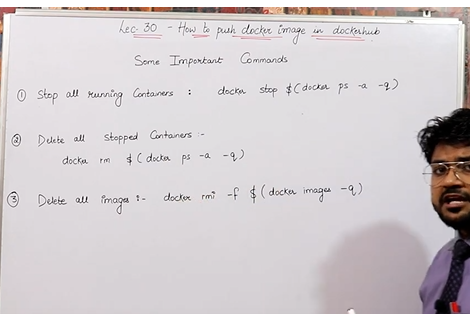 Lec-30 - How to push docker image in dockerhub
Some Important Commands
① Stop all running Containers : docker stop $(docker ps -a -q)
② Delete all stopped Containers :-
docker rm $(docker ps -a -q)
③ Delete all images :- docker rmi -f $(docker images -q)